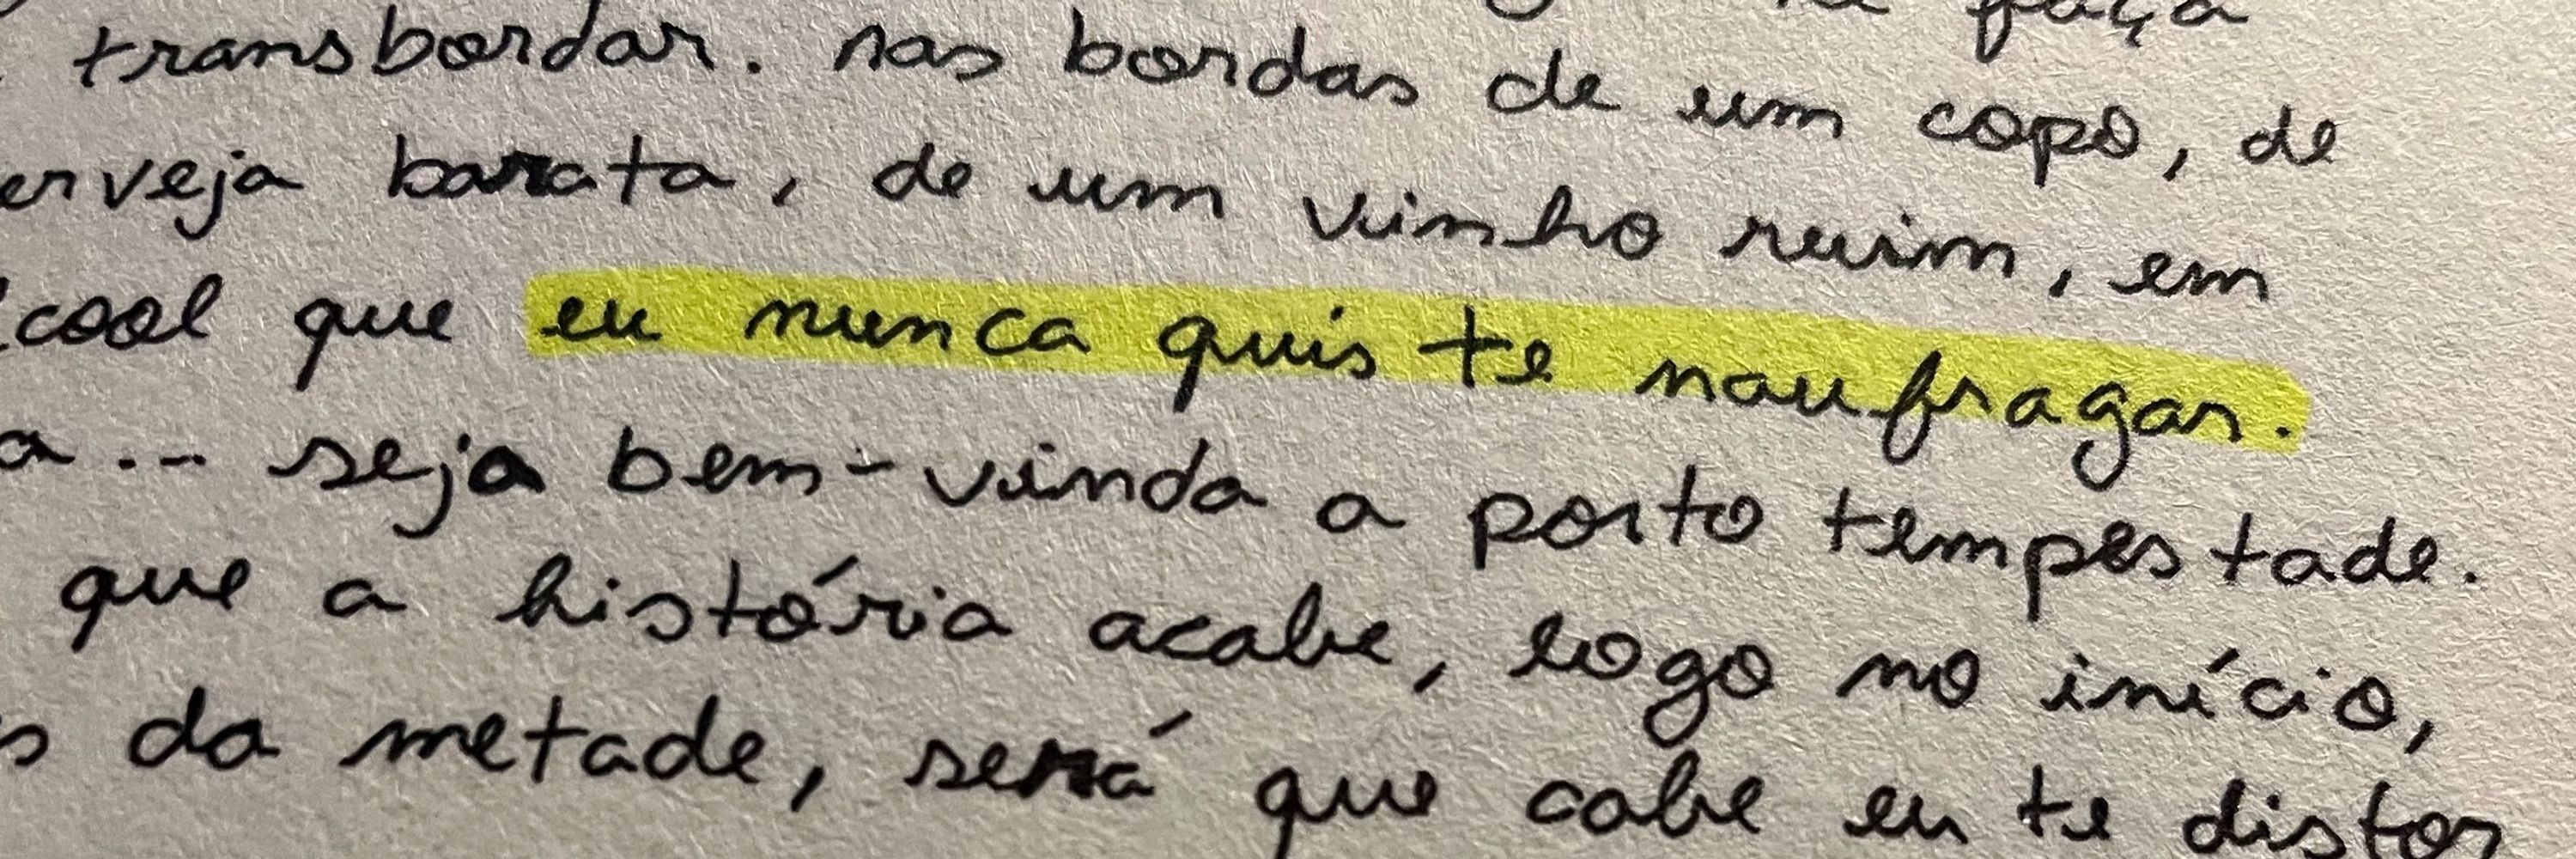 faça
transbordar. nas bordas de um copo, de
erveja barata, de um vinho ruim, em
lcool que eu nunca quis te naufragar.
a... seja bem-vinda a porto tempestade.
que a história acabe, logo no início,
s da metade, será que cabe eu te distor